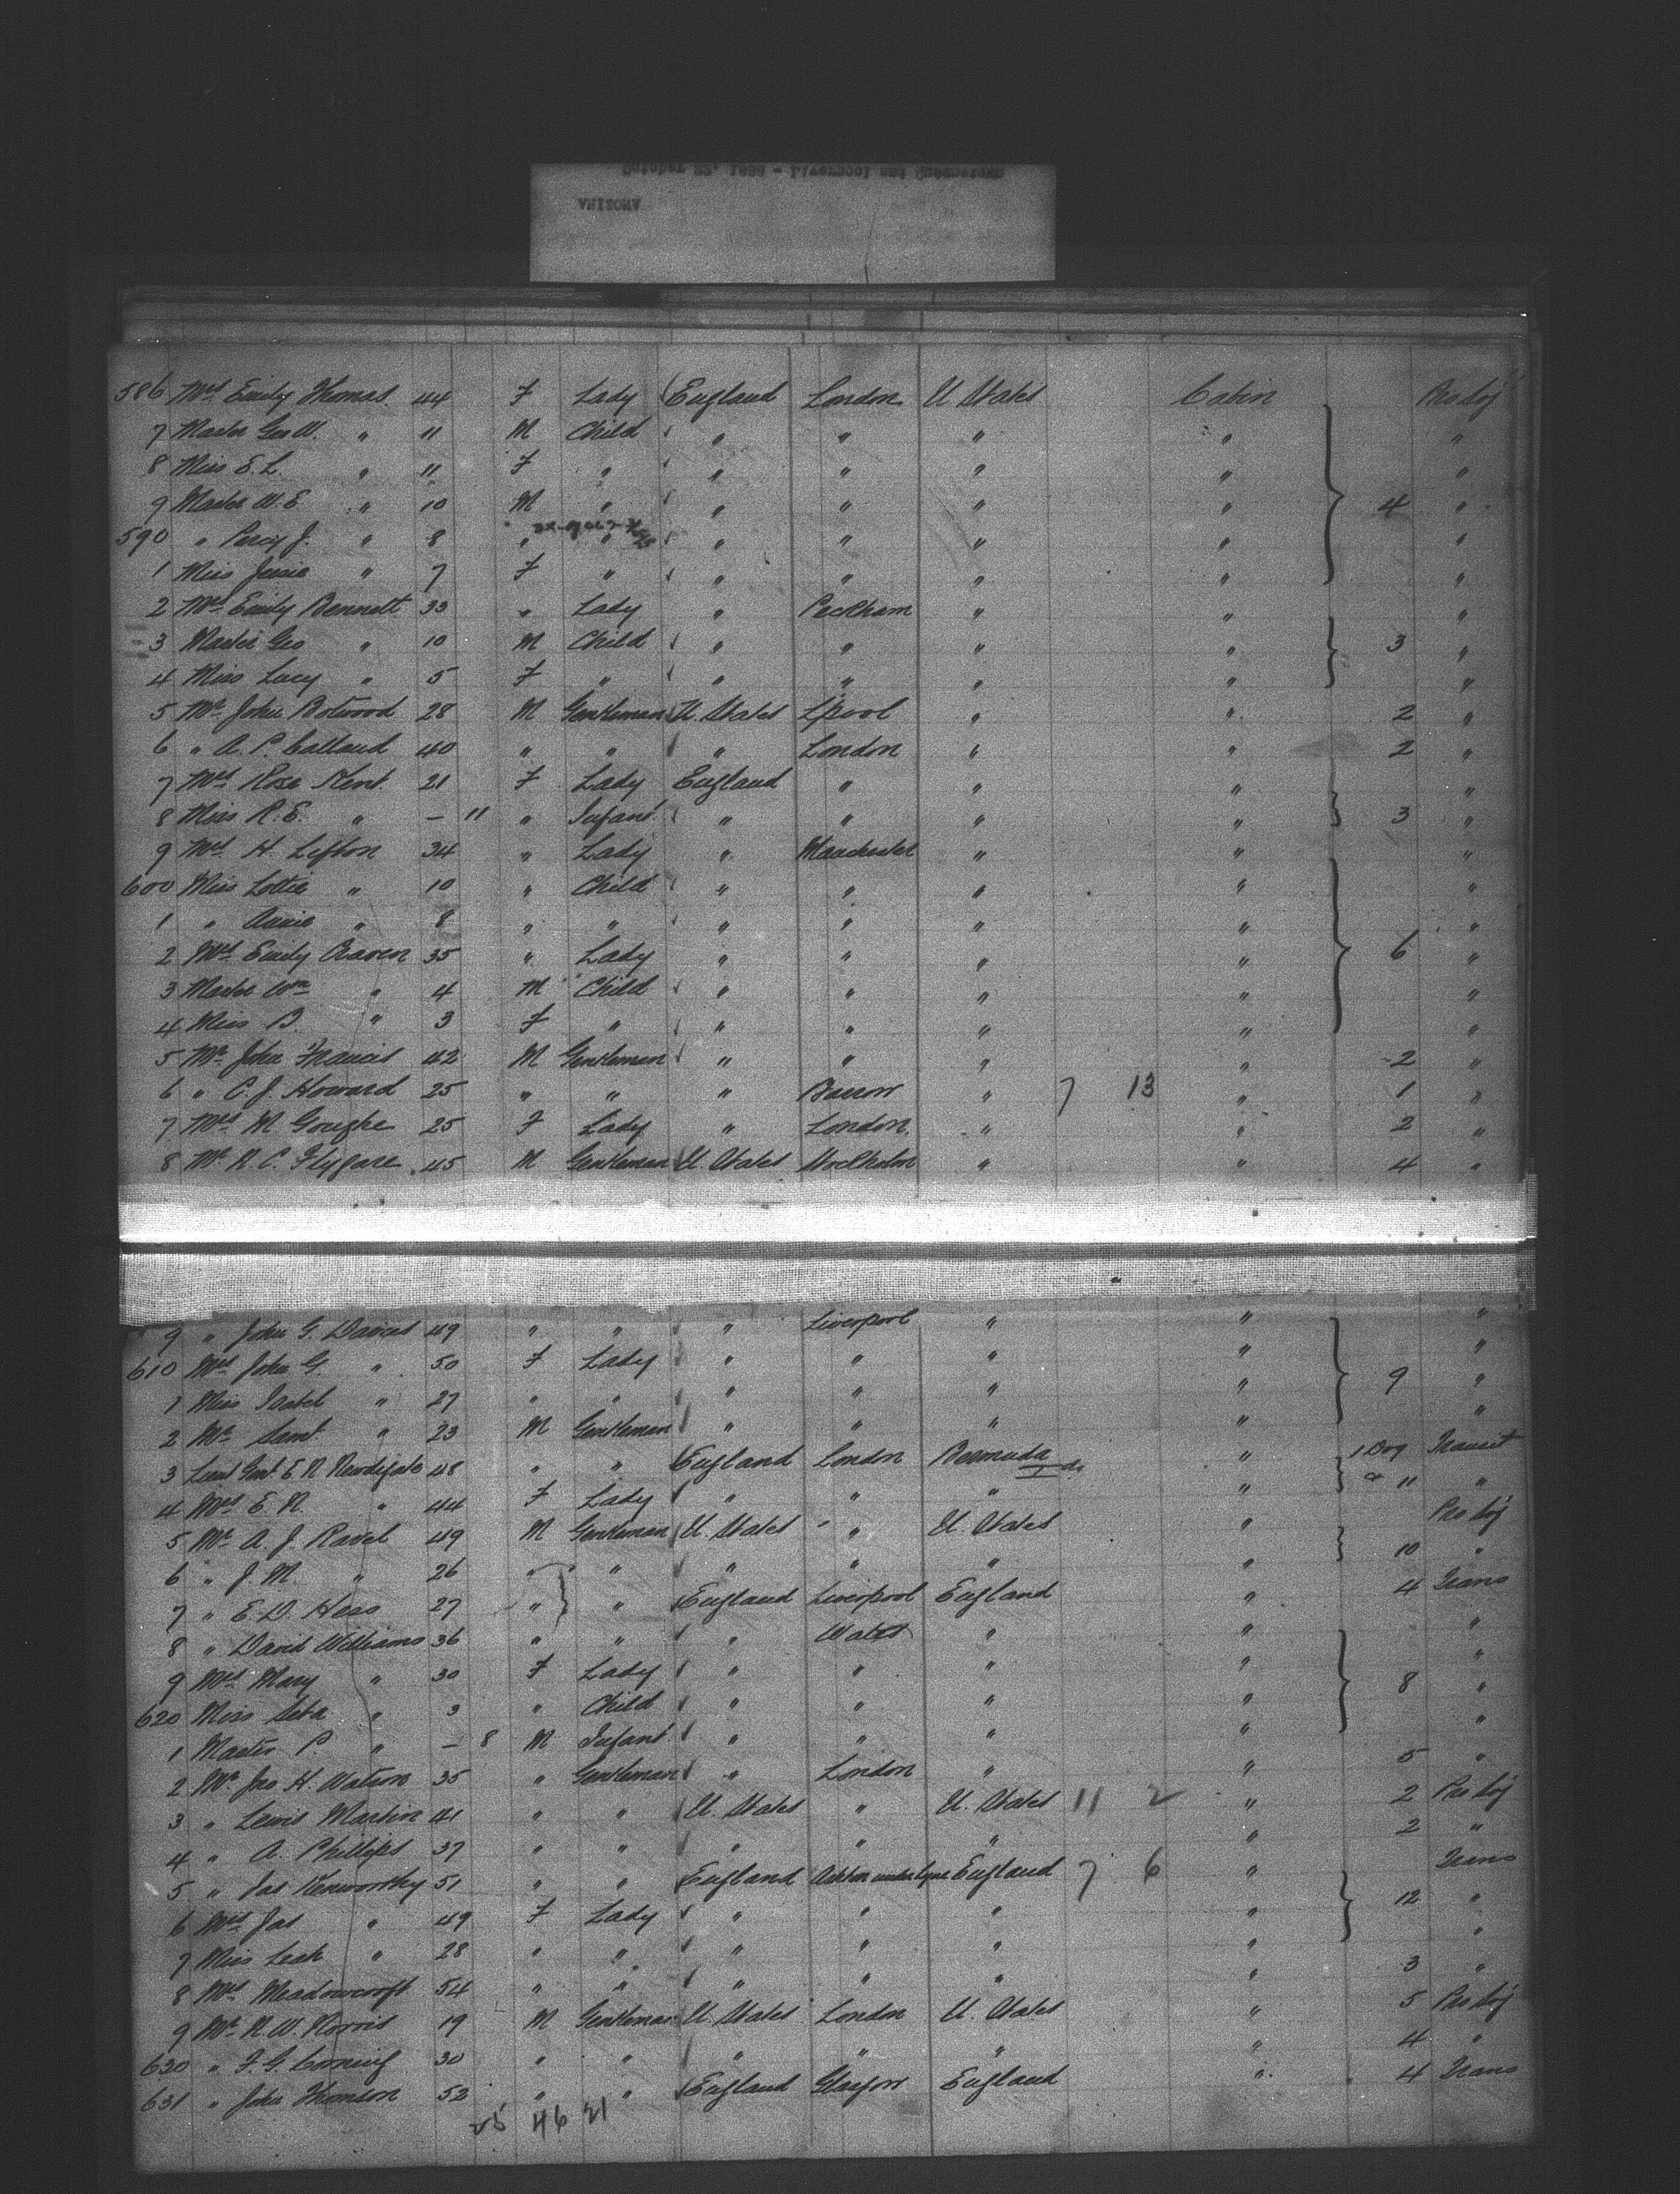 October 22, 1888 - Liverpool and Queenstown
ARIZONA
586 Mrs Emily Thomas 44 F Lady England London U States Cabin Pro Soj
7 Master Geo W. " 11 M Child " " " " "
8 Miss E. L. " 11 F " " " " " "
9 Master W. E " 10 M " " " " " 4 "
590 " Percy J. " 8 " " " " " " "
1 Miss Jessie " 7 F " " " " " "
2 Mrs Emily Bennett 33 " Lady " Peckham " " "
3 Master Geo " 10 M Child " " " " 3 "
4 Miss Lucy " 5 F " " " " " "
5 Mr John Botwood 28 M Gentleman U. States L'pool " " 2 "
6 " A. P. Calland 40 " " " London " " 2 "
7 Mrs Rose Kent 21 F Lady England " " " "
8 Miss R. E. " - 11 " Infant " " " " 3 "
9 Mrs H. Lefton 34 " Lady " Manchester " " "
600 Miss Lottie " 10 " Child " " " " "
1 " Annie " 8 " " " " " " "
2 Mrs Emily Craven 35 " Lady " " " " 6 "
3 Master Wm " 4 M Child " " " " "
4 Miss B. " 3 F " " " " " "
5 Mr John Francis 42 M Gentleman " " " " 2 "
6 " C. J. Howard 25 " " " Barrow " 7 13 " 1 "
7 Mrs M Goughe 25 F Lady " London " " 2 "
8 Mr N. C. Flygare 45 M Gentleman U. States Stockholm " " 4 "
9 " John G. Davies 49 " " " Liverpool " " "
610 Mrs John G. " 50 F Lady " " " " "
1 Miss Isabel " 27 " " " " " " 9 "
2 Mr Saml. " 23 M Gentleman " " " " "
3 Lieut Genl E N Newdigate 48 " " England London Bermuda " 1 Dog Transit
4 Mrs E. N. " 44 F Lady " " " " & 11 "
5 Mr A. J. Ravel 49 M Gentleman U. States " U. States " Pro Soj
6 " J. M. " 26 " " " " " " 10 "
7 " E. D. Hess 27 " " England Liverpool England " 4 Trans
8 " David Williams 36 " " " Wales " " "
9 Mrs Mary " 30 F Lady " " " " "
620 Miss Seta " 3 " Child " " " " 8 "
1 Master P. " - 8 M Infant " " " " "
2 Mr Jno H. Watson 35 " Gentleman " London " " 5 "
3 " Lewis Martin 41 " " U. States " U. States 11 2 " 2 Pro Soj
4 " A. Phillips 37 " " " " " " 2 "
5 " Jas Kenworthy 51 " " England Ashton under Lyne England 7 6 " Trans
6 Mrs Jas " 49 F Lady " " " " 12 "
7 Miss Leah " 28 " " " " " " "
8 Mrs Meadowcroft 54 " " " " " " 3 "
9 Mr N. W. Norris 19 M Gentleman U. States London U. States " 5 Pro Soj
630 " F. G. Corning 30 " " " " " " 4 "
631 " John Thomson 52 " " England Glasgow England " 4 Trans
25 46 21